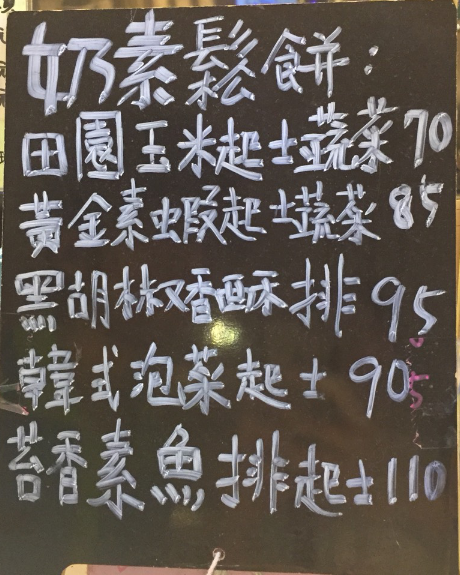 奶素鬆餅：
田園玉米起士蔬菜 70
黃金素蝦起士蔬菜 85
黑胡椒香酥排 95
韓式泡菜起士 90
苔香素魚排起士 110